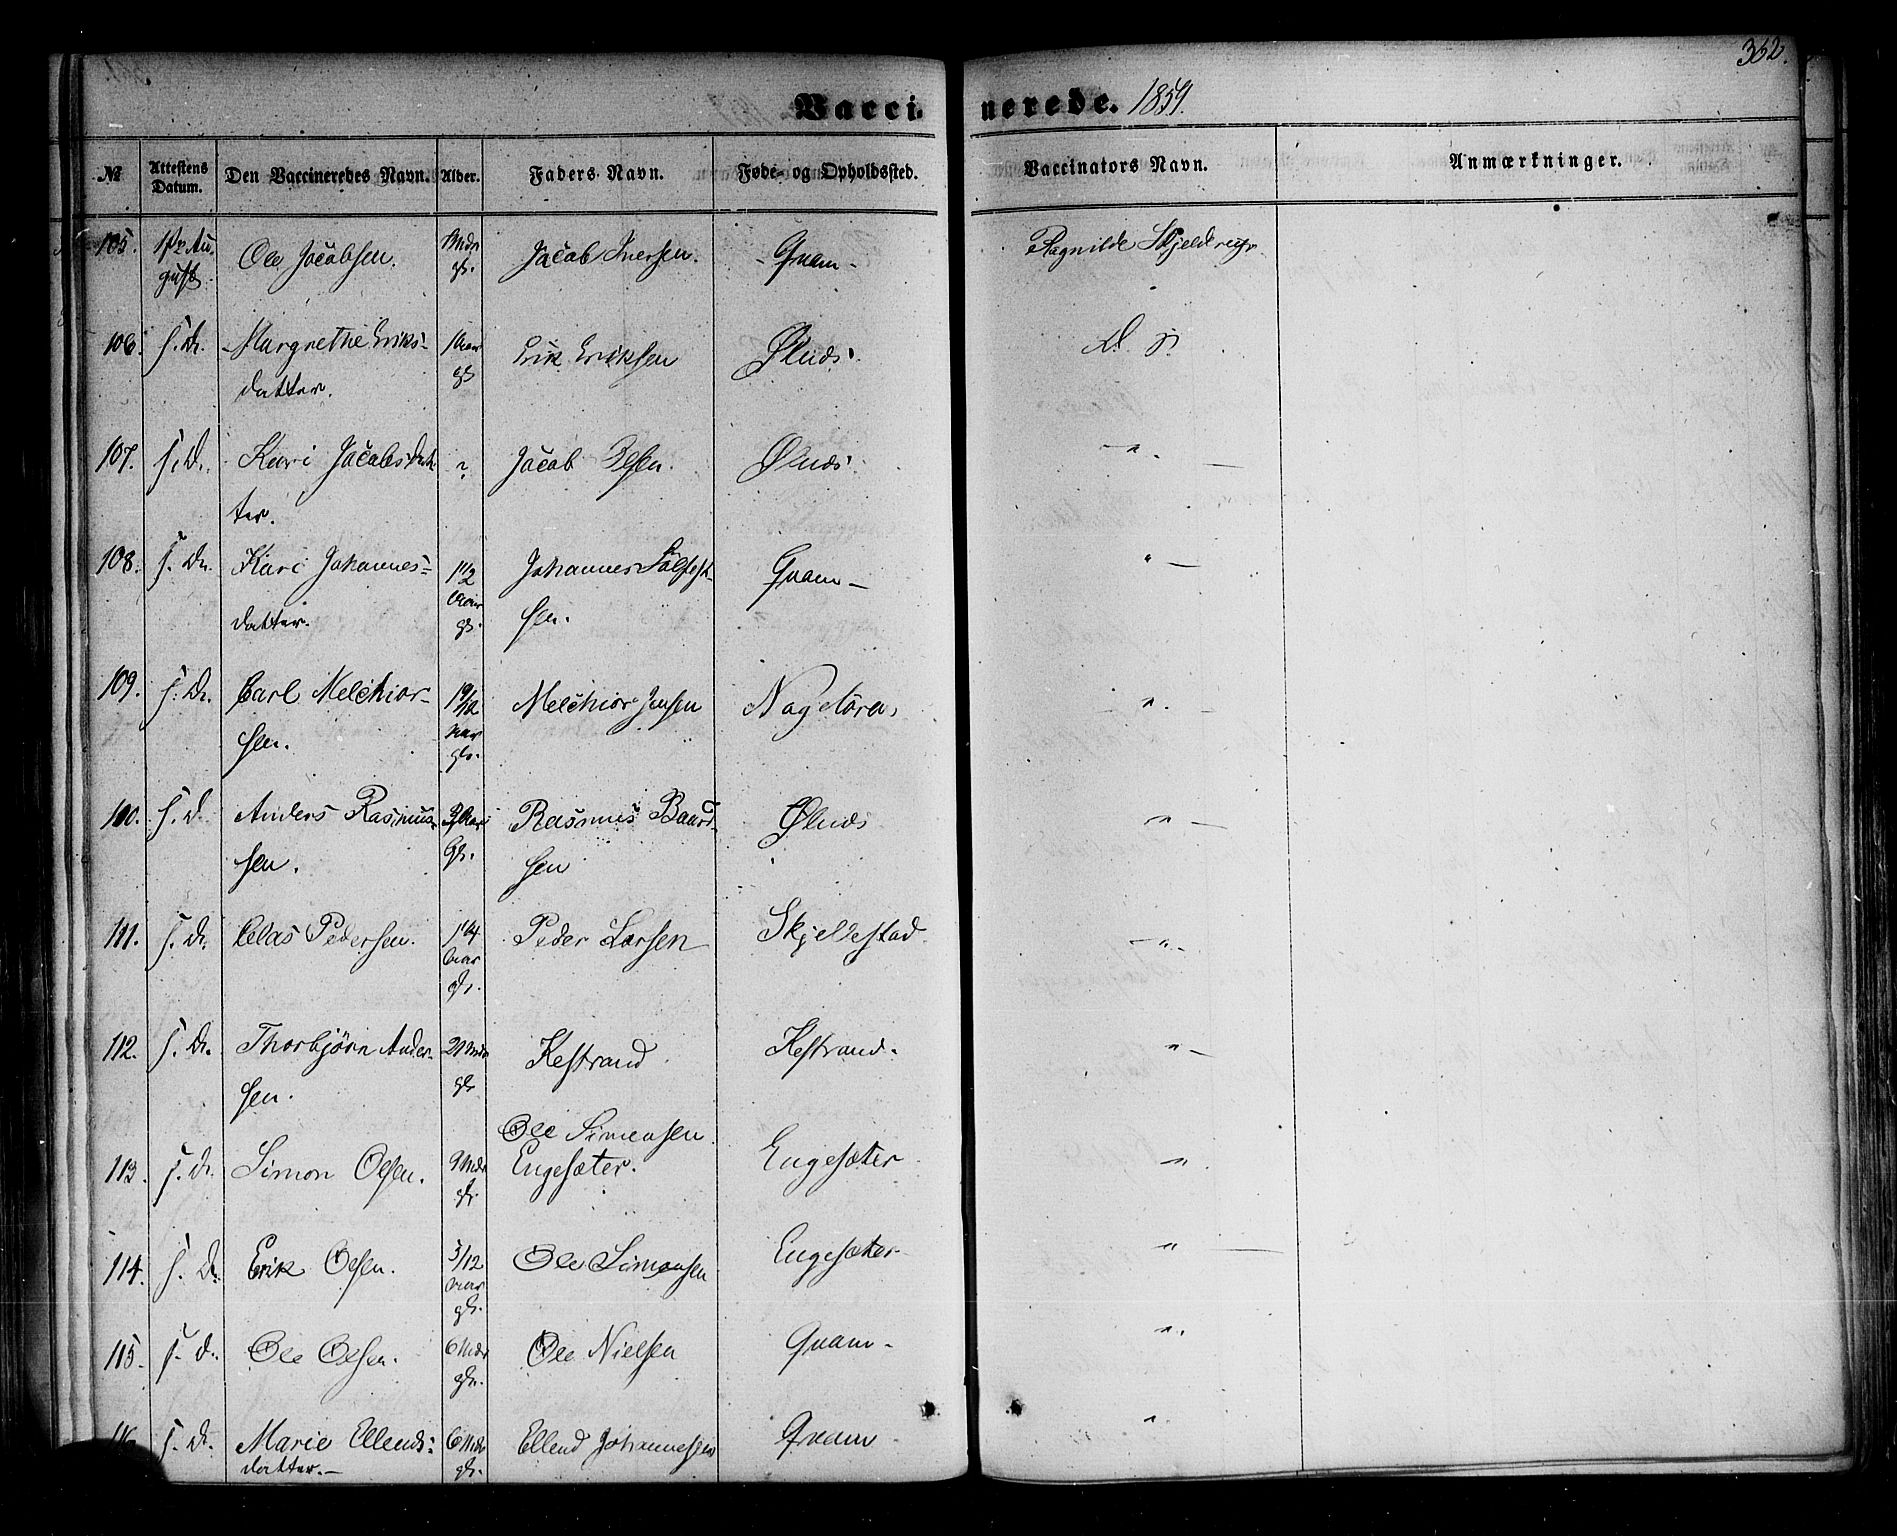 352.
Vaccinerede. 1859.
№ Attestens Datum. Den Vaccineredes Navn. Alder. Faders Navn. Føde- og Opholdssted. Vaccinators Navn. Anmærkninger.
105. August Ole Jacobsen. Mdr gl. Jacob Iversen. - Qvam - Ragnilde Skjelderup
106. s. D. Margrethe Eriksdatter. 1 Aar gl Erik Eriksen Ølnæs. D. s.
107. s. D. Kari Jacobsdatter. " Jacob Olsen. Ølnæs. " —
108. s. D. Kari Johannesdatter. 1 1/2 Aar gl. Johannes Sølfestsen. Qvam — " —
109. s. D. Carl Melchiorsen. Aar gl. Melchior Jensen Nagløren " —
110. s. D. Anders Rasmussen. Aar gl. Rasmus Baardsen Ølnæs " —
111. s. D. Clas Pedersen. 1 1/4 Aar gl. Peder Larsen Skjeldestad. — " -
112. s. D. Thorbjörn Andersen. 21 Mdr gl Kestrand Kestrand. " —
113. s. D. Simon Olsen. 9 Mdr gl. Ole Simonsen Engesæter. Engesæter " .
114. s. D. Erik Olsen. 5/12 Aar gl. Ole Simonsen Engesæter " —
115. s. D. Ole Olsen. 6 Mdr gl. Ole Nielsen Qvam - " .
116 s. D. Marie Ellendsdatter. — 6 Mdr gl. Ellend Johannessen Qvam " .